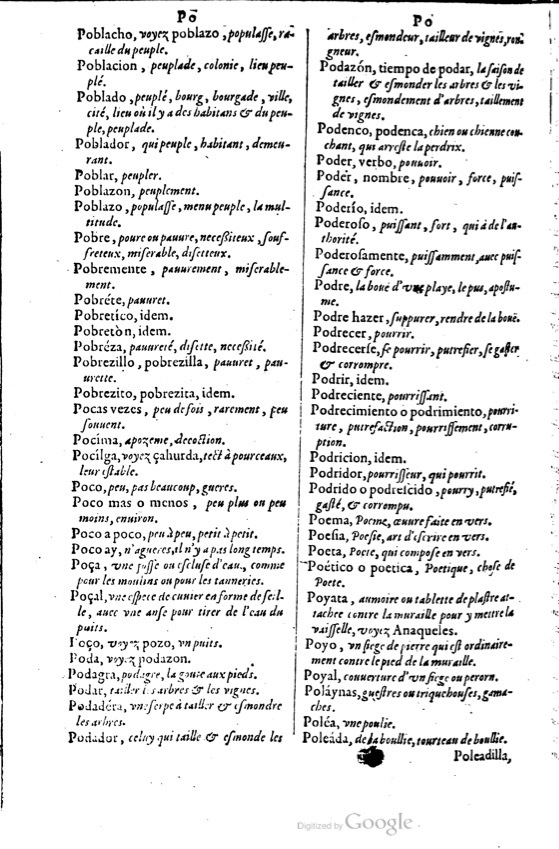 Põ
Poblacho, voyez poblazo, populaſſe, ra-
caille du peuple.
Poblacion, peuplade, colonie, lieu peu-
plé.
Poblado, peuplé, bourg, bourgade, ville,
cité, lieu où il y a des habitans & du peu-
ple, peuplade.
Poblador, qui peuple, habitant, demeu-
rant.
Poblar, peupler.
Poblazon, peuplement.
Poblazo, populaſſe, menu peuple, la mul-
titude.
Pobre, poure ou pauure, neceßiteux, ſouf-
freteux, miſerable, diſetteux.
Pobremente, pauurement, miſerable-
ment.
Pobréte, pauuret.
Pobretico, idem.
Pobretòn, idem.
Pobréza, pauureté, diſette, neceßité.
Pobrezillo, pobrezilla, pauuret, pau-
urette.
Pobrezito, pobrezita, idem.
Pocas vezes, peu de fois, rarement, peu
ſouuent.
Pocima, apozeme, decoction.
Pocilga, voyez çahurda, tect à pourceaux,
leur eſtable.
Poco, peu, pas beaucoup, gueres.
Poco mas o menos, peu plus ou peu
moins, enuiron.
Poco a poco, peu à peu, petit à petit.
Poco ay, n'agueres, il n'y a pas long temps.
Poça, vne foſſe ou eſcluſe d'eau, comme
pour les moulins ou pour les tanneries.
Poçal, vne eſpece de cuuier en forme de ſeil-
le, auec vne anſe pour tirer de l'eau du
puits.
Poço, voyez pozo, vn puits.
Poda, voyez podazon.
Podagra, podagre, la goute aux pieds.
Podar, tailler les arbres & les vignes.
Podadéra, vne ſerpe à tailler & eſmondre
les arbres.
Podador, celuy qui taille & eſmonde les
Po
arbres, eſmondeur, tailleur de vignes, ron-
gneur.
Podazón, tiempo de podar, la ſaiſon de
tailler & eſmonder les arbres & les vi-
gnes, eſmondement d'arbres, taillement
de vignes.
Podenco, podenca, chien ou chienne cou-
chant, qui arreſte la perdrix.
Poder, verbo, pouuoir.
Poder, nombre, pouuoir, force, puiſ-
ſance.
Poderío, idem.
Poderoſo, puiſſant, fort, qui à de l'au-
thorité.
Poderoſamente, puiſſamment, auec puiſ-
ſance & force.
Podre, la bouë d'vne playe, le pus, apoſtu-
me.
Podre hazer, ſuppurer, rendre de la bouë.
Podrecer, pourrir.
Podrecerſe, ſe pourrir, putrefier, ſe gaſter
& corrompre.
Podrir, idem.
Podreciente, pourriſſant.
Podrecimiento o podrimiento, pourri-
ture, putrefaction, pourriſſement, corru-
ption.
Podricion, idem.
Podridor, pourriſſeur, qui pourrit.
Podrido o podreſcido, pourry, putrefié,
gaſté, & corrompu.
Poema, Poeme, œuure faite en vers.
Poeſia, Poeſie, art d'eſcrire en vers.
Poeta, Poete, qui compoſe en vers.
Poético o poetica, Poetique, choſe de
Poete.
Poyata, aumoire ou tablette de plaſtre at-
tachee contre la muraille pour y mettre la
vaiſſelle, voyez Anaqueles.
Poyo, vn ſiege de pierre qui eſt ordinaire-
ment contre le pied de la muraille.
Poyal, couuerture d'vn ſiege ou peron.
Poláynas, gueſtres ou triquehouſes, gama-
ches.
Poléa, vne poulie.
Poleáda, de la boullie, tourteau de boullie.
Poleadilla,
Digitized by Google